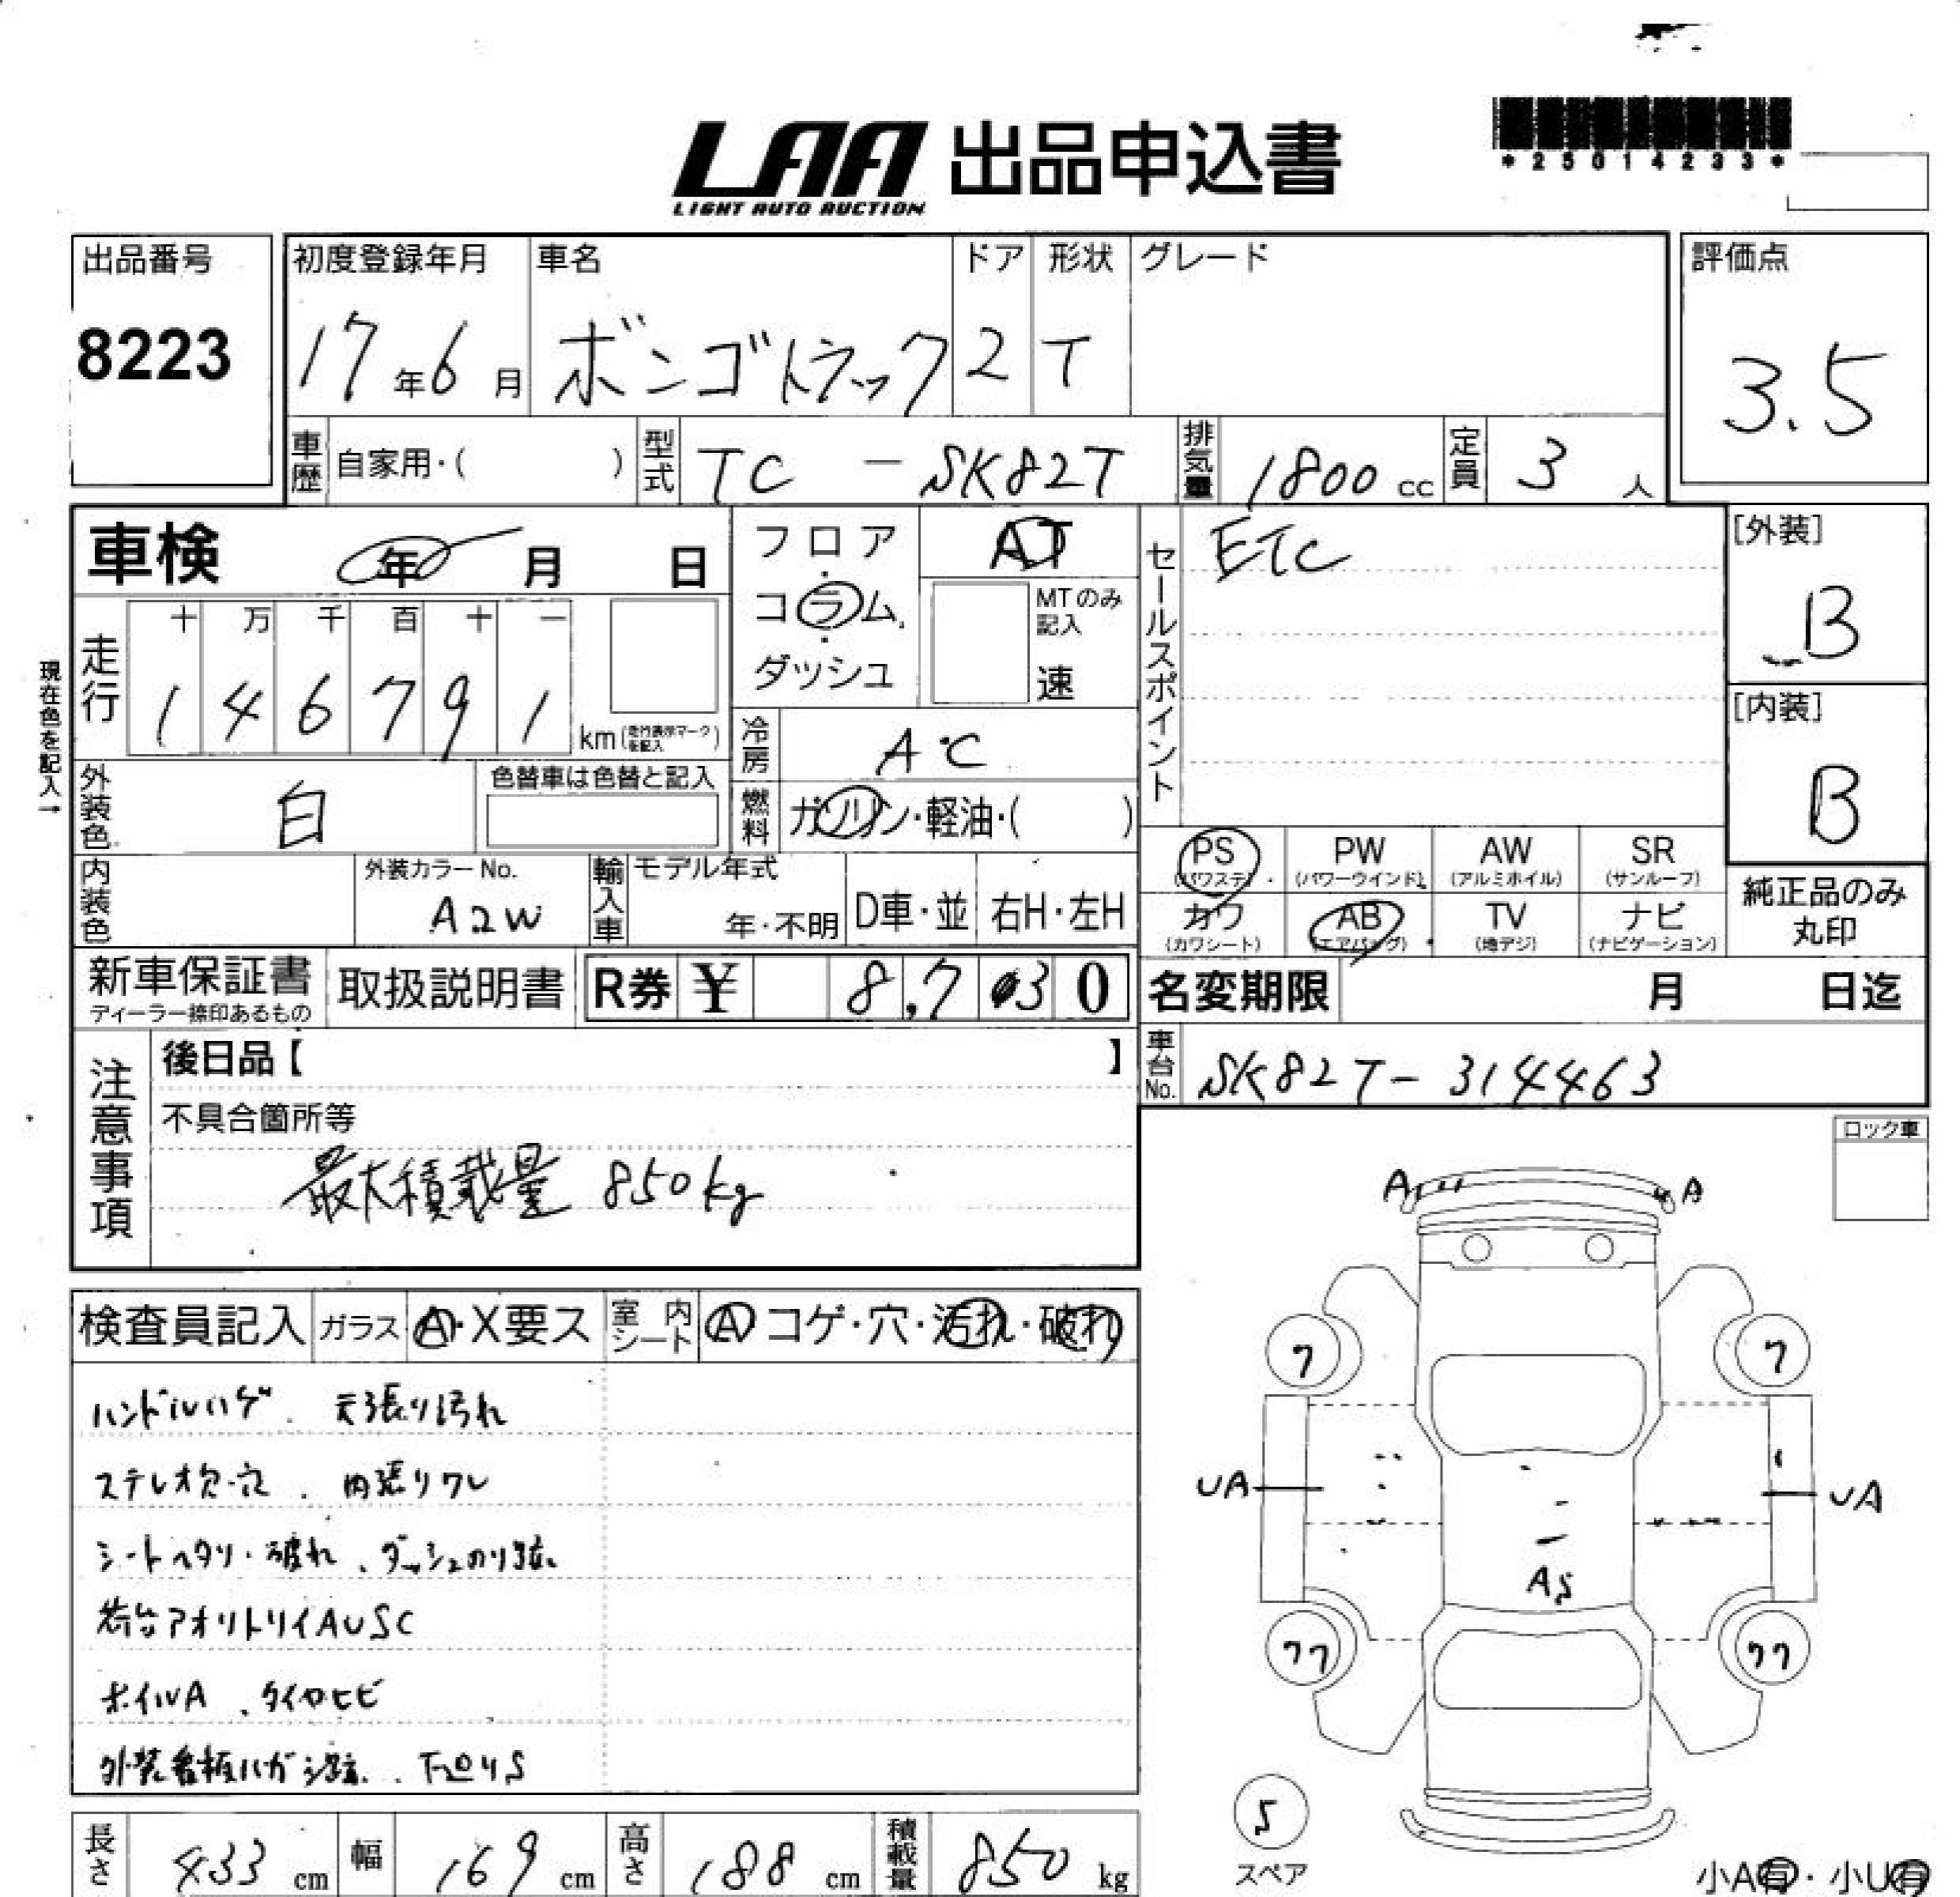 LAA 出品申込書
LIGHT AUTO AUCTION
*25014233*
出品番号
8223
初度登録年月
17年6月
車名
ボンゴトラック
ドア
2
形状
T
グレード
評価点
3.5
車歴 自家用・( )
型式 TC - SK82T
排気量 1800 cc
定員 3 人
車検 年 月 日
現在色を記入→
走行
十 万 千 百 十 一
1 4 6 7 9 1 km (走行表示マークを記入)
フロア・コラム・ダッシュ
AT
MTのみ記入
速
冷房 AC
燃料 ガソリン・軽油・( )
外装色 白
色替車は色替と記入
内装色
外装カラーNo.
A2W
輸入車
モデル年式
年・不明
D車・並
右H・左H
セールスポイント
ETC
[外装]
B
[内装]
B
PS (パワステ)
PW (パワーウインド)
AW (アルミホイル)
SR (サンルーフ)
カワ (カワシート)
AB (エアバッグ)
TV (地デジ)
ナビ (ナビゲーション)
純正品のみ
丸印
新車保証書
ディーラー捺印あるもの
取扱説明書
R券 ¥ 8,730
名変期限 月 日迄
車台No. SK82T-314463
注意事項
後日品【 】
不具合箇所等
最大積載量 850kg
ロック車
検査員記入
ガラス A・X要ス
室内シート A コゲ・穴・汚れ・破れ
ハンドルハゲ. 天張り汚れ
ステレオ欠・穴. 内張りワレ
シートヘタリ・破れ、ダッシュのり跡
荷台アオリトリイAUSC
ホイルA、タイヤヒビ
外装看板ハガシ跡. 下回りS
A
A
7
7
UA
UA
AS
77
77
5
スペア
小A有・小U有
長さ 433 cm
幅 169 cm
高さ 188 cm
積載量 850 kg